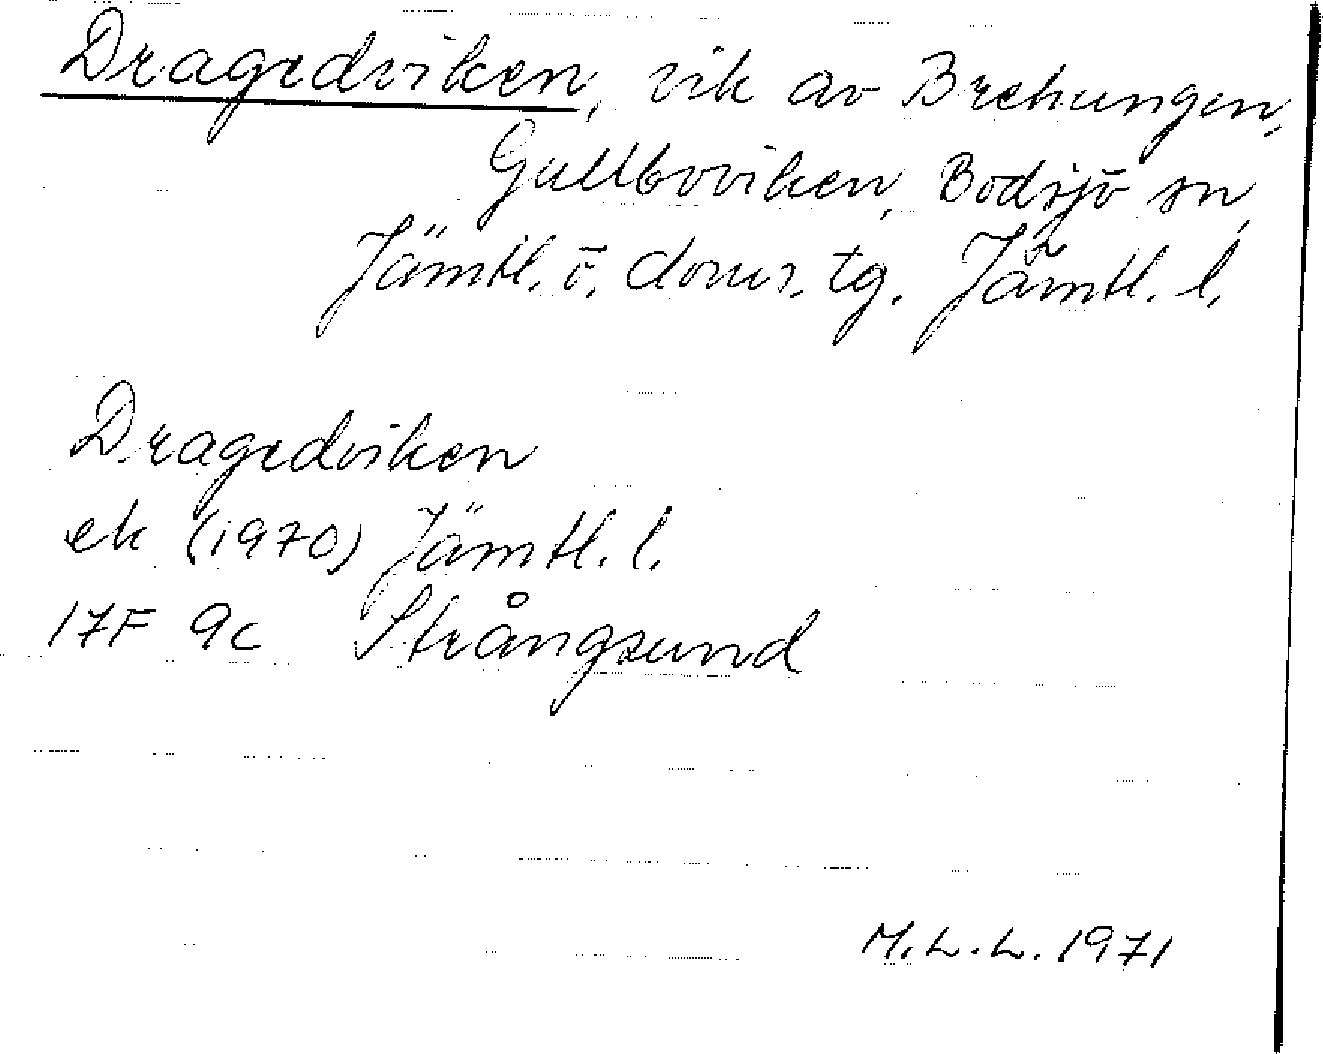 Dragedviken, vik av Brehungen,
Gullboviken, Bodsjö sn,
Jämtl. ö. doms. tg. Jämtl. l.
Dragedviken
ek (1970) Jämtl. l.
17F 9c Strångsund
M.L.L. 1971